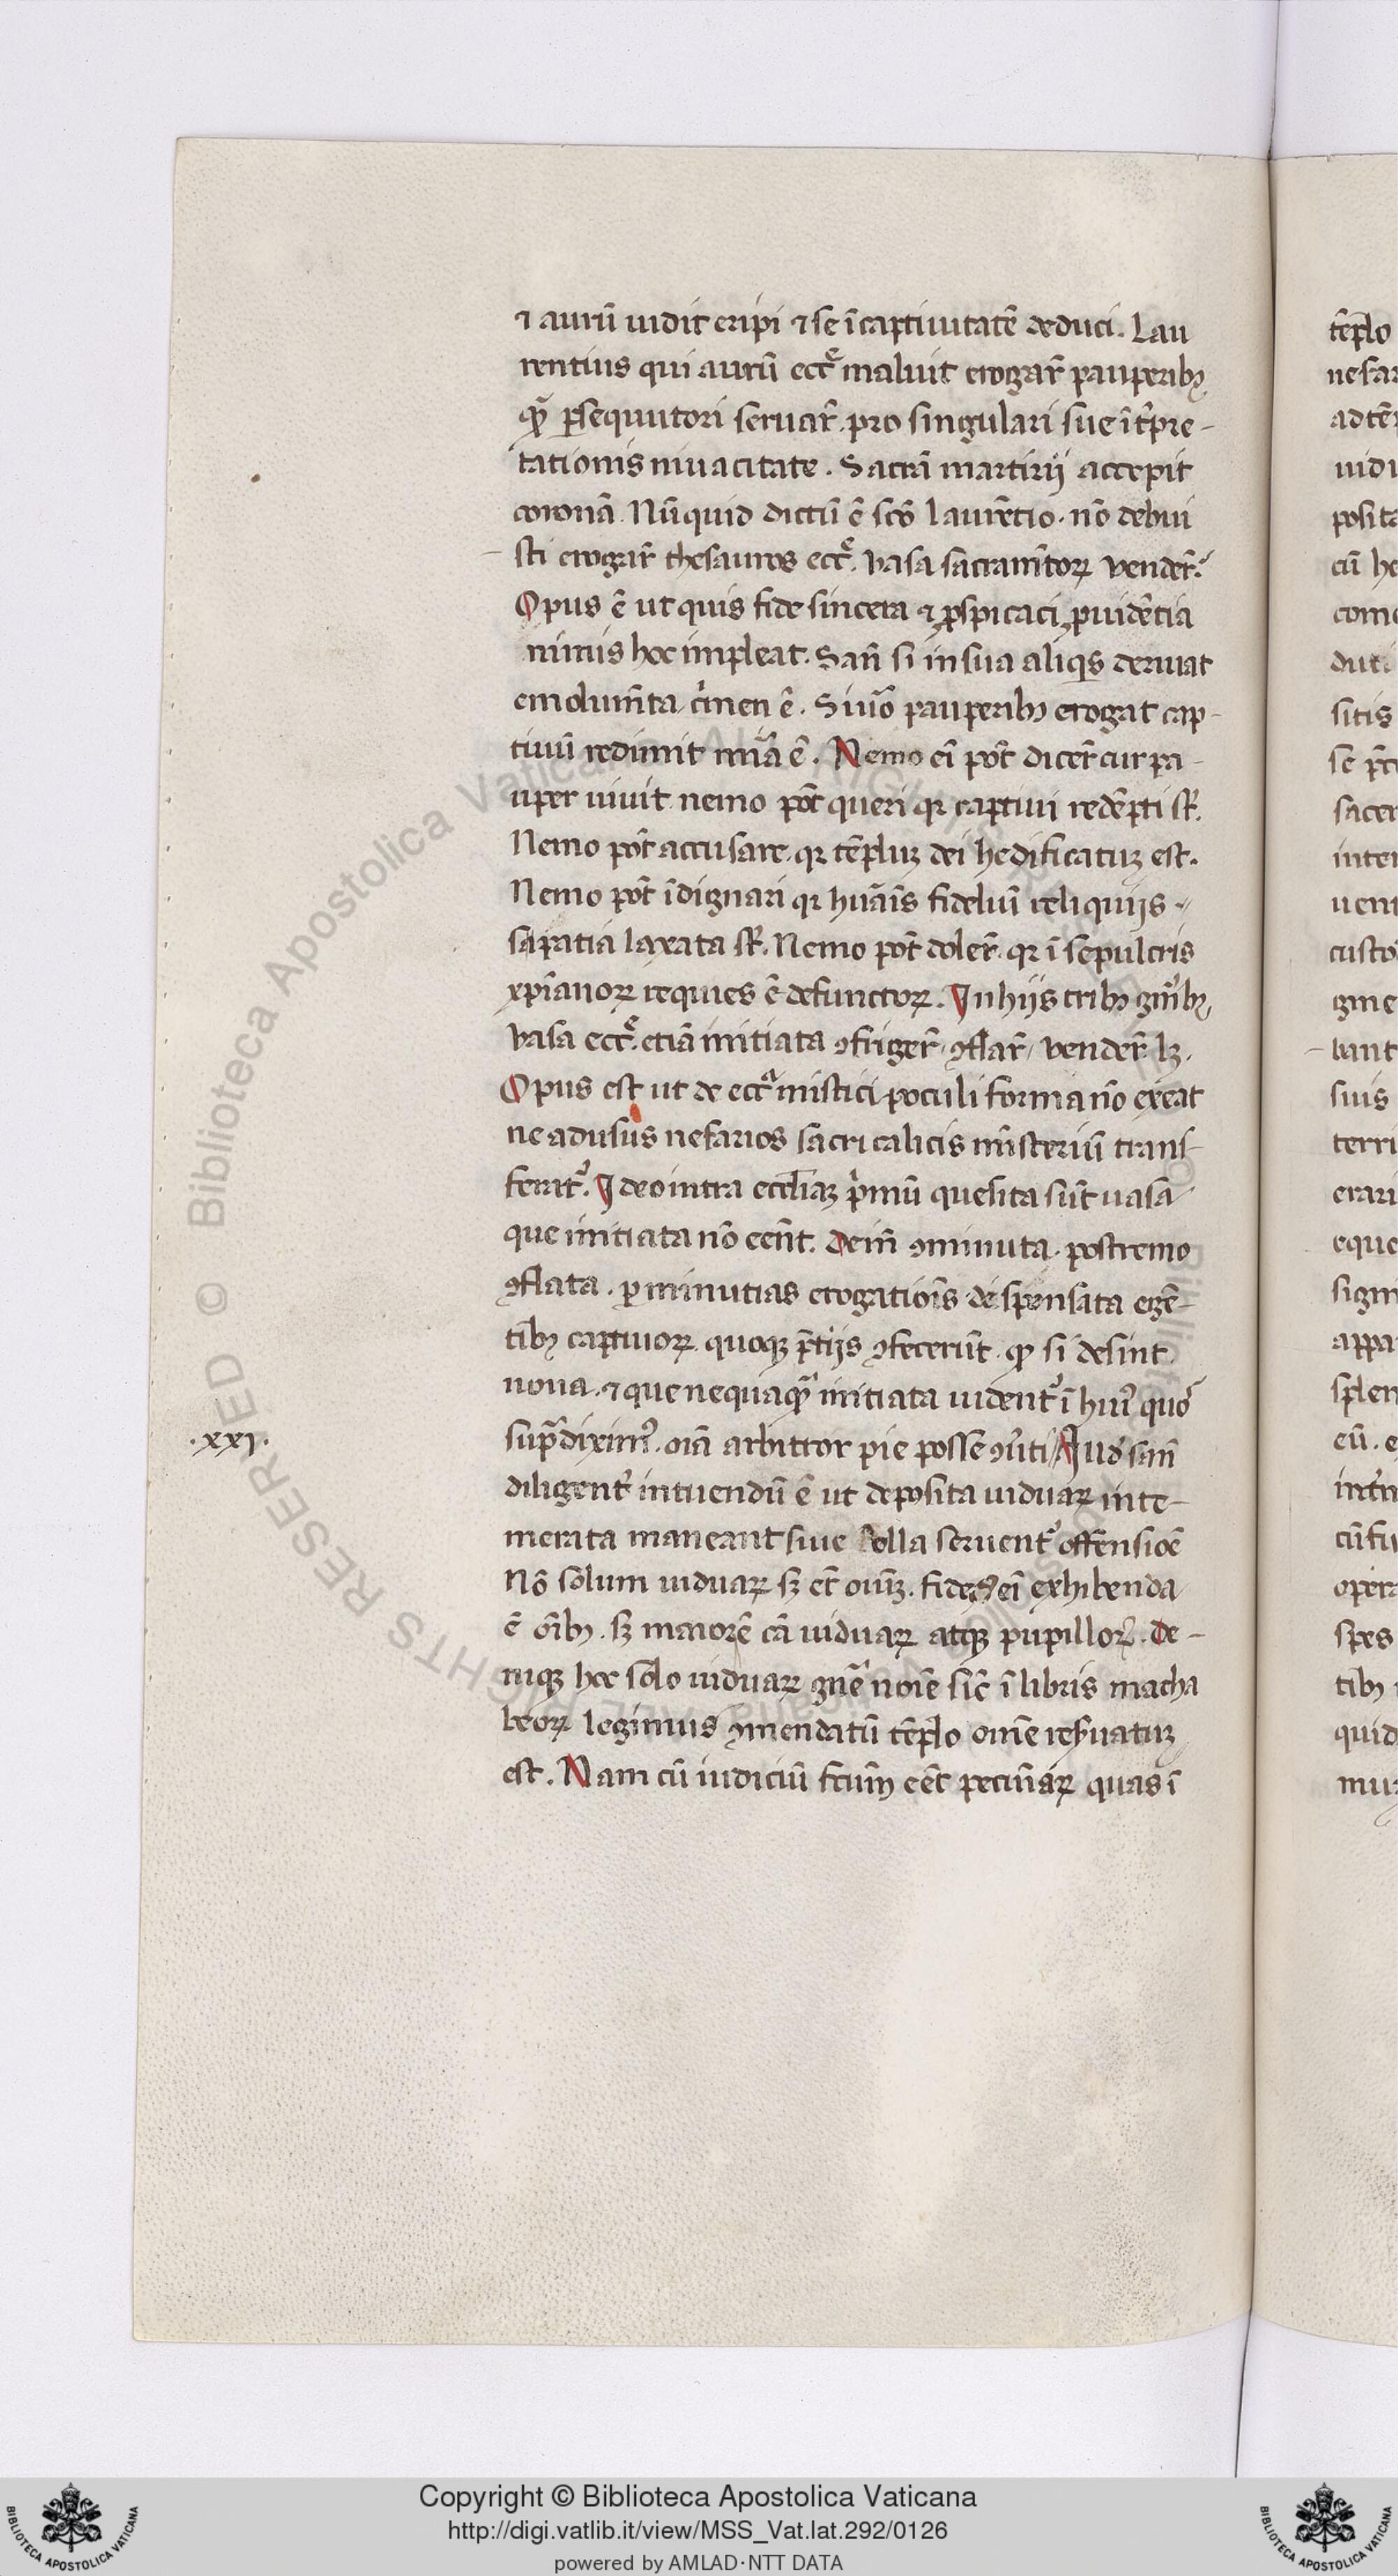 ⁊ aurū uidit eripi ⁊ se ī captiuitatē deduci. Lau
rentius qui aurū eccē maluit erogar̄ pauperibꝫ
qꝫ̄ ꝑsequutori seruar̄. pro singulari sue īt̄pre-
tationis uiuacitate. Sacrā martirij accepit
coronā. Nūquid dictū ē sc̄o laurētio. nō debui
sti erogar̄ thesauros ecc̄e. vasa sacram̄toꝝ vender̄.
Opus ē ut quis fide sincera ⁊ ꝑspicaci ꝓuidētia
minus hoc impleat. San̄ si in sua aliqͥs deriuat
emolum̄ta. cͥmen ē. Si uō pauperibꝫ erogat cap-
tiuū redimit mīa ē. Nemo eī pōt dicer̄ cur pa-
uper uiuit. nemo pōt queri qꝛ captiui redēpti sͭ.
Nemo pōt accusare. qꝛ tēpluꝫ dei hedificatuꝫ est.
Nemo pōt īdignari qꝛ huāis fideliū reliquijs
sapatia laxata sͭ. Nemo pōt doler̄. qꝛ ī sepulcris
xp̄ianoꝝ requies ē defunctoꝝ. In hijs tribꝫ gn̄ibꝫ
vasa ecc̄e. etiā initiata ꝯfriger̄. ꝯflar̄. vender̄ lꝫ.
Opus est ut de ecc̄a mistici poculi forma nō exeat
ne ad usus nefarios sacri calicis mīsteriū trans-
ferat᷑. Ideo intra eccl̄iaꝫ pͥmū quesita sūt uasa
que initiata nō een̄t. dein̄ ꝯminuta. postremo
ꝯflata. ꝑ minutias erogatiōis dispensata egē-
tibꝫ captiuoꝝ. quoqꝫ p̄tijs ꝯfecerūt. qꝫ si desint
noua. ⁊ que nequaqꝫ̄ initiata uident᷑ ī huiꝰ quō
sup̄diximꝰ. oīa arbitror pie posse ꝯūti Aliud san̄
.lxx.
diligent᷑ intuendū ē ut deposita uiduaꝝ inte-
merata maneant siue olla seruent᷑ offensioē
Nō solum uiduaꝝ sꝫ et̄ oīuꝫ. fides eī exhibenda
ē oībꝫ. sꝫ maiorē cā uiduaꝝ atqꝫ pupilloꝝ. de-
niqꝫ hoc solo uiduaꝝ gn̄e noīe sic̄ ī libris macha
beoꝝ legimus ꝯmendatū tēplo om̄e res̄uatuꝫ
est. Nam cū iudiciū fc̄uꝫ eēt pecūiaꝝ quas ī
tēplo
nefar
ad tē
uidu
posita
cū he
com
duci
sitis
se p̄
sacer
inter
ueni
custo
gme
bant
suis
terri
erari
eque
sign
appa
splen
eū. e
int̄u
cū fu
opera
spes
tibꝫ
quid
muꝫ
Copyright © Biblioteca Apostolica Vaticana
http://digi.vatlib.it/view/MSS_Vat.lat.292/0126
powered by AMLAD·NTT DATA